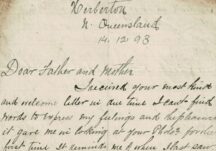 Herberton
N. Queensland
14.12.93
Dear Father and Mother
I received your most kind
and welcome letter in due time I cant find
words to express my feelings and
it gave me in looking at your Photo's for the
first time It reminds me of when I last saw